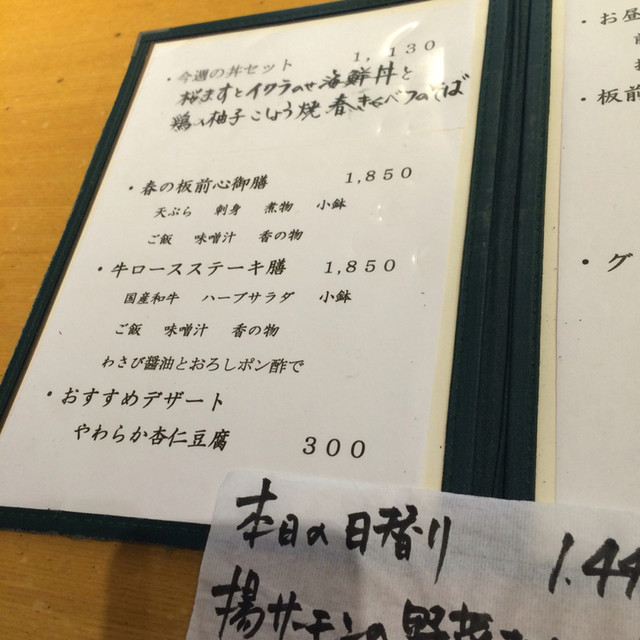 ・今週の丼セット 1,130
桜ますとイクラのせ海鮮丼と
鶏 柚子こしょう焼 春きゃべつのそば
・春の板前心御膳 1,850
天ぷら 刺身 煮物 小鉢
ご飯 味噌汁 香の物
・牛ロースステーキ膳 1,850
国産和牛 ハーブサラダ 小鉢
ご飯 味噌汁 香の物
わさび醤油とおろしポン酢で
・おすすめデザート
やわらか杏仁豆腐 300
・お昼
・板前
・グ
本日の日替り 1.44
揚サーモンの野菜